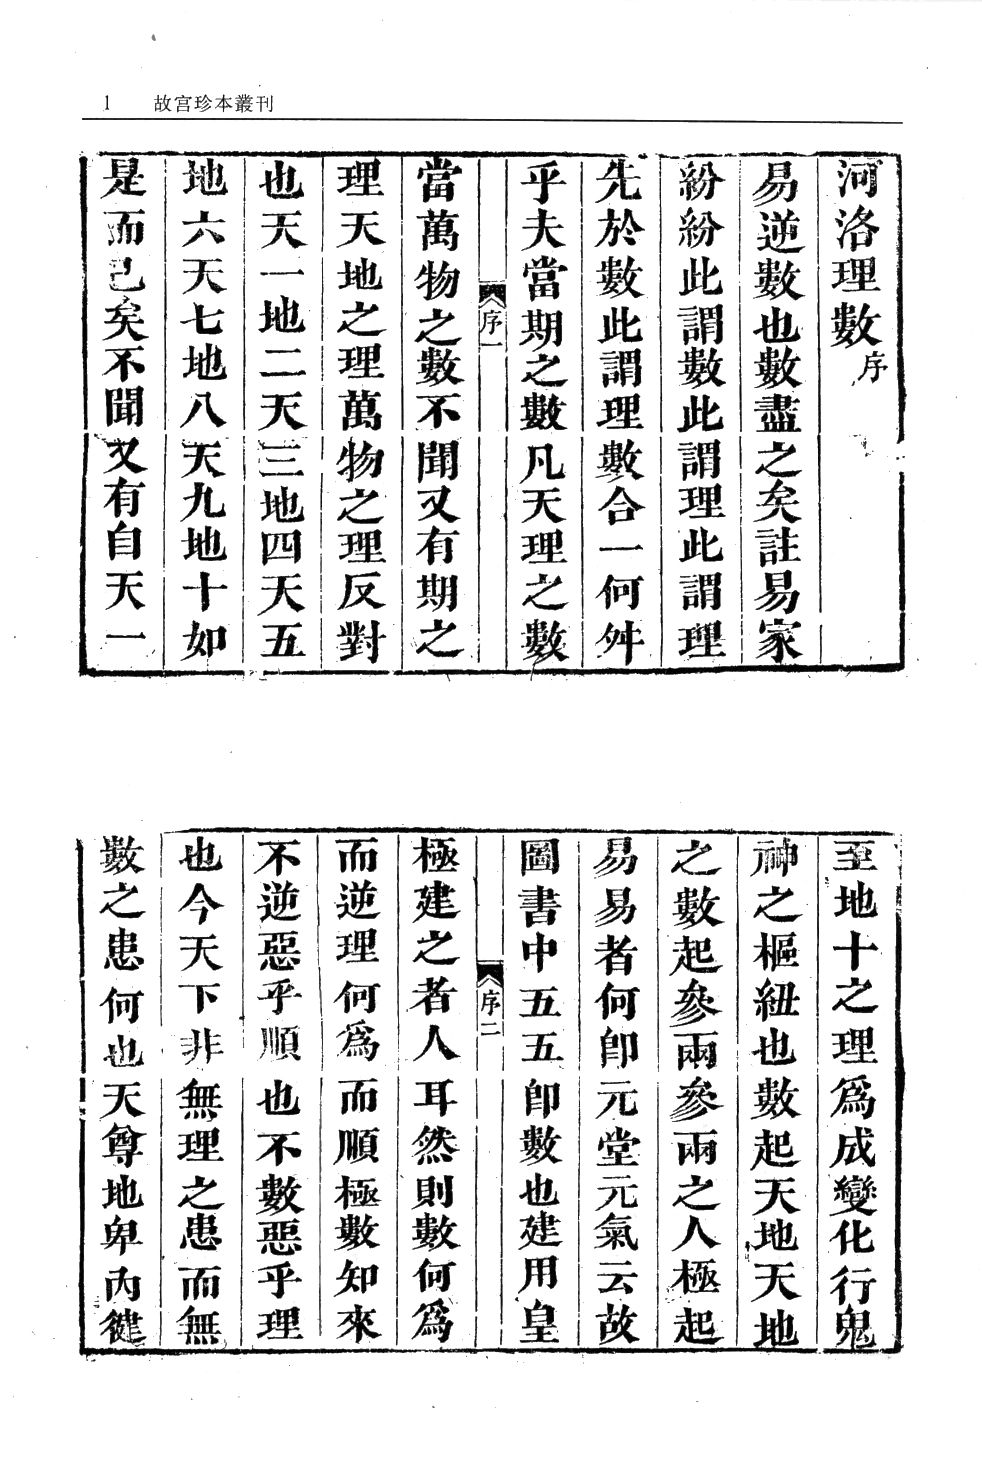 1 故宫珍本叢刊
河洛理數序
易逆數也數盡之矣註易家
紛紛此謂數此謂理此謂理
先於數此謂理數合一何舛
乎夫當期之數凡天理之數
序一
當萬物之數不聞又有期之
理天地之理萬物之理反對
也天一地二天三地四天五
地六天七地八天九地十如
是而已矣不聞又有自天一
至地十之理爲成變化行鬼
神之樞紐也數起天地天地
之數起參兩參兩之人極起
易易者何卽元堂元氣云故
圖書中五五卽數也建用皇
序二
極建之者人耳然則數何爲
而逆理何爲而順極數知來
不逆惡乎順也不數惡乎理
也今天下非無理之患而無
數之患何也天尊地卑內健